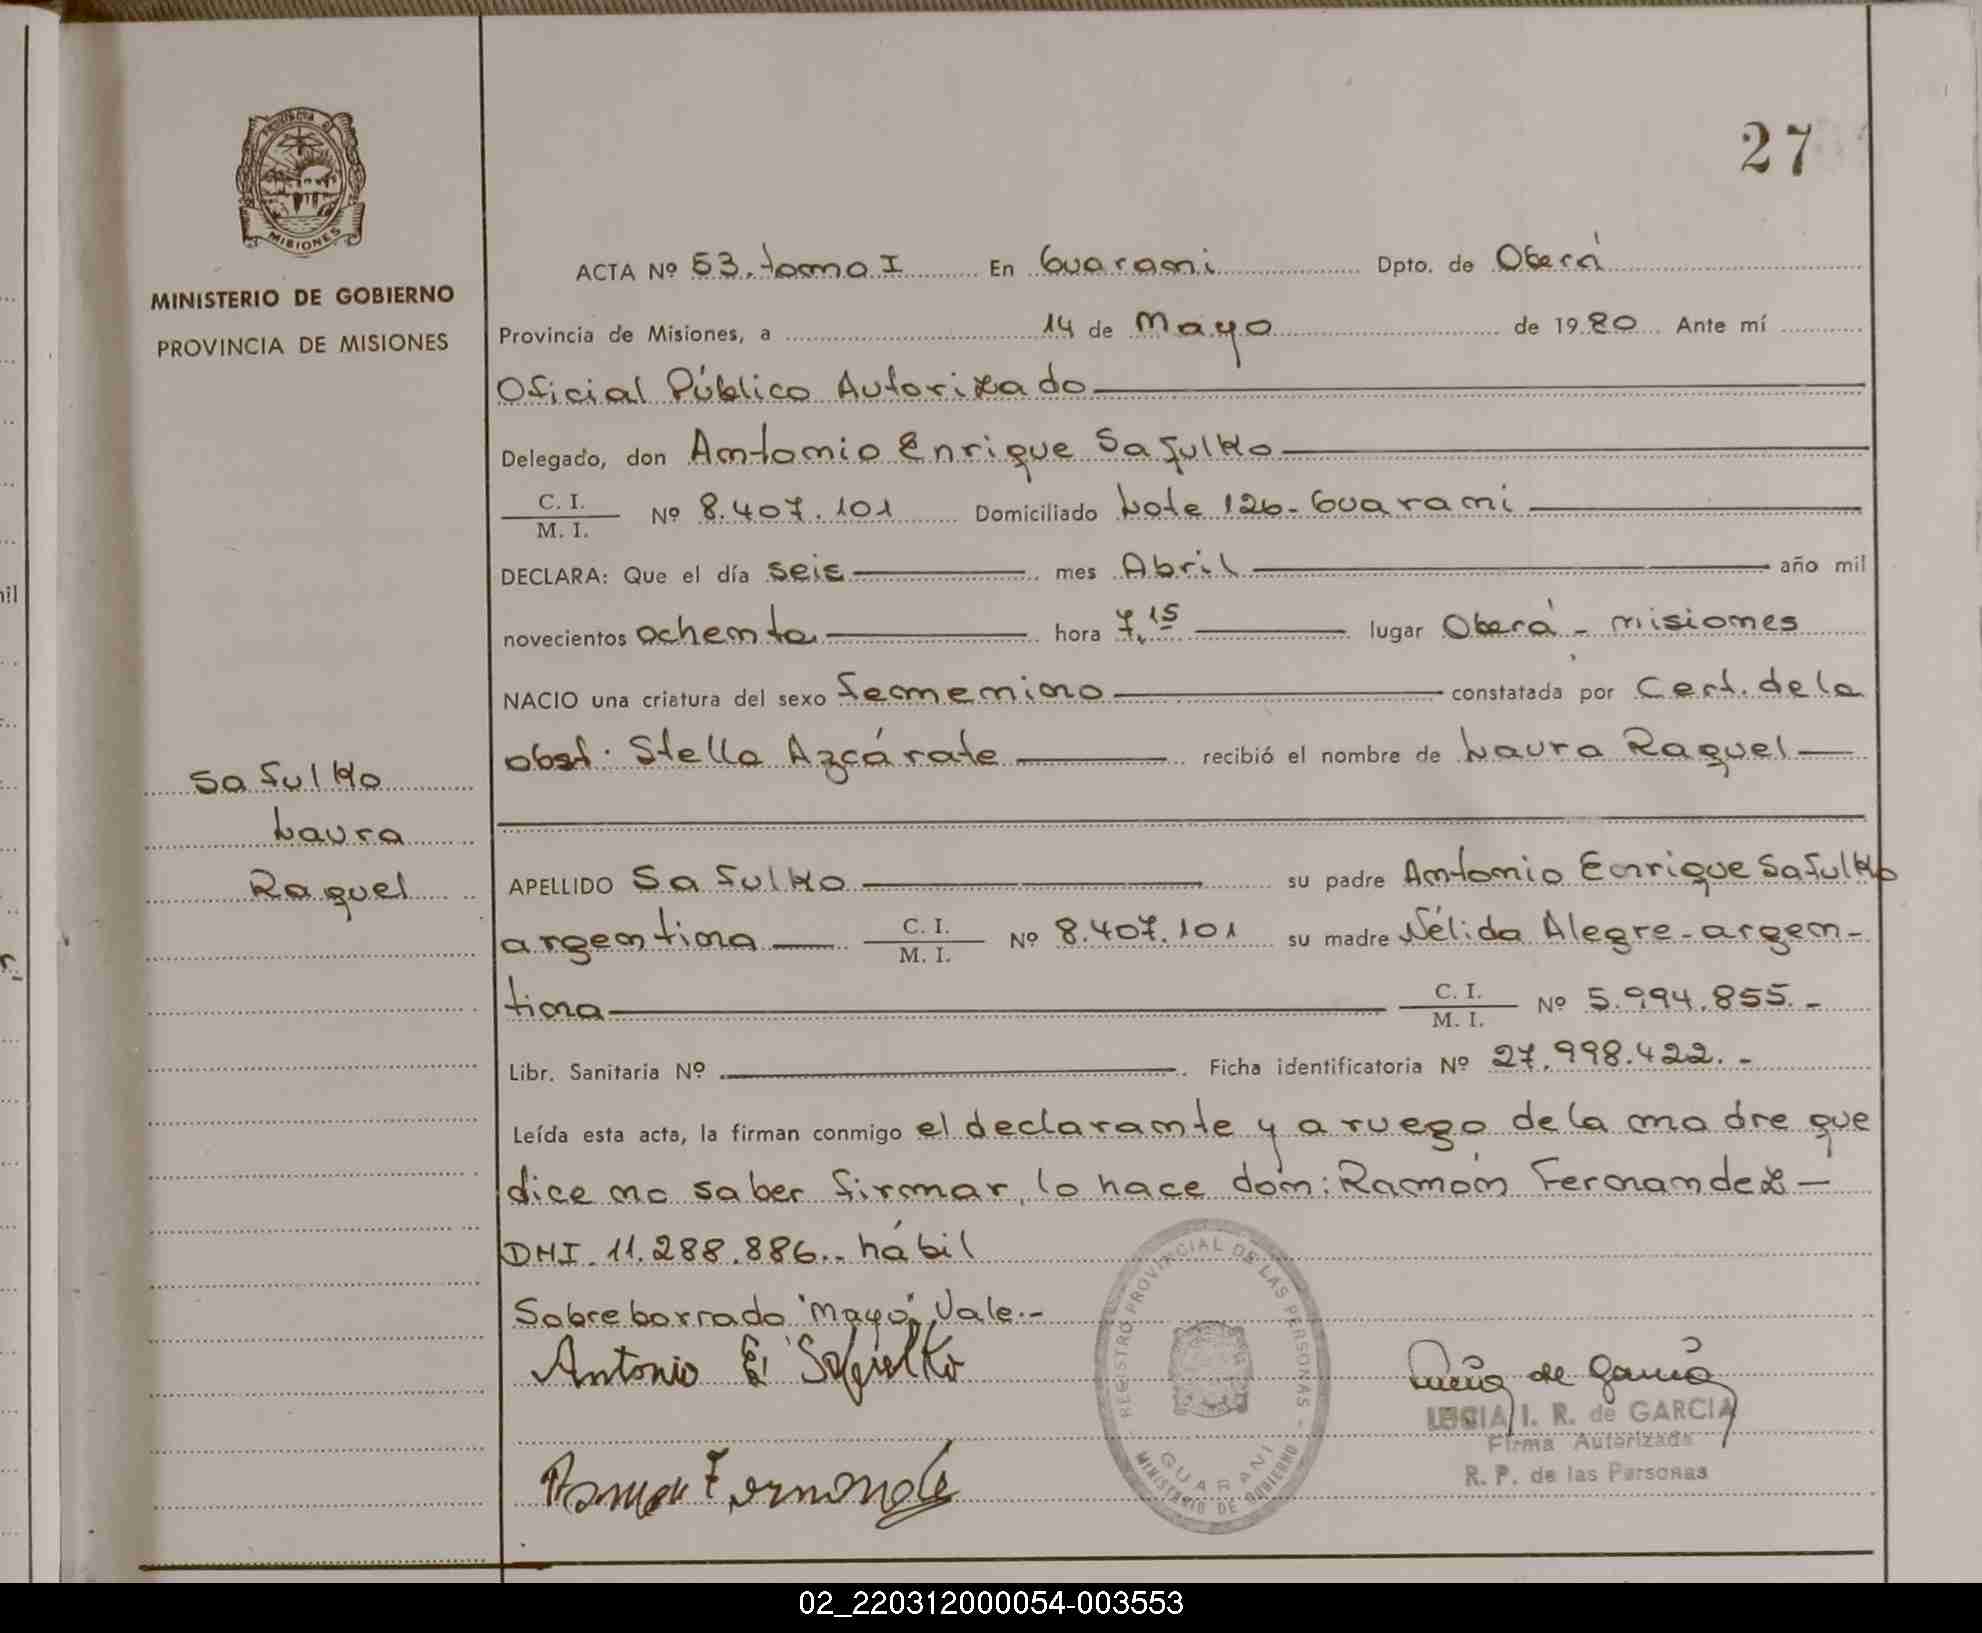 27
PROVINCIA DE
MISIONES
MINISTERIO DE GOBIERNO
PROVINCIA DE MISIONES
ACTA Nº 53. tomo I En Guarani Dpto. de Oberá
Provincia de Misiones, a 14 de Mayo de 1980 Ante mí
Oficial Público Autorizado
Delegado, don Antonio Enrique Safulko
C. I. / M. I. Nº 8.407.101 Domiciliado Lote 126-Guarani
DECLARA: Que el día seis mes Abril año mil
novecientos ochenta hora 7,15 lugar Oberá - misiones
NACIO una criatura del sexo femenino constatada por Cert. de la
obst. Stella Azcárate recibió el nombre de Laura Raquel
Safulko
Laura
Raquel
APELLIDO Safulko su padre Antonio Enrique Safulko
argentina C. I. / M. I. Nº 8.407.101 su madre Nélida Alegre-argen-
tina C. I. / M. I. Nº 5.994.855.-
Libr. Sanitaria Nº Ficha identificatoria Nº 27.998.422.-
Leída esta acta, la firman conmigo el declarante y a ruego de la madre que
dice no saber firmar, lo hace don: Ramón Fernandez-
DNI. 11.288.886.. hábil
Sobreborrado "Mayo", Vale.-
Antonio E. Safulko
Lucia de Garcia
LUCIA I. R. de GARCIA
Firma Autorizada
R. P. de las Personas
REGISTRO PROVINCIAL DE LAS PERSONAS
GUARANI
MINISTERIO DE GOBIERNO
Ramon Fernande
02_220312000054-003553